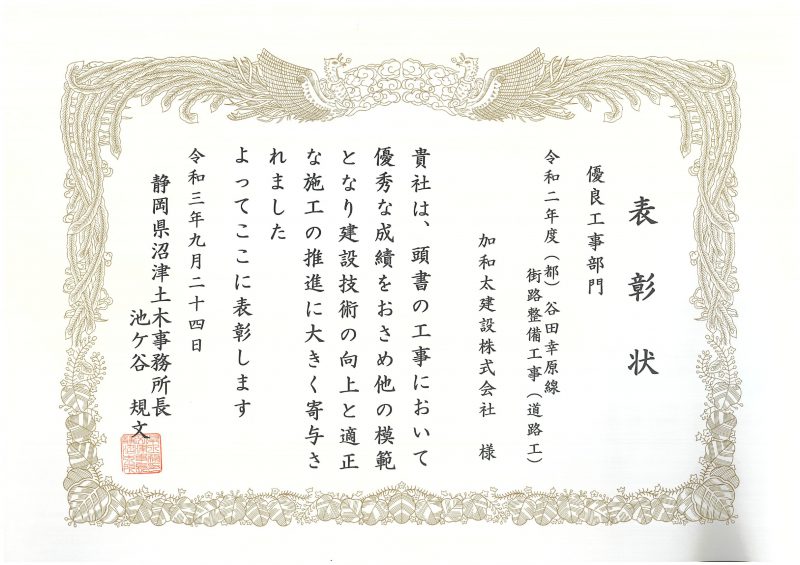 表彰状
優良工事部門
令和二年度（都）谷田幸原線
街路整備工事（道路工）
加和太建設株式会社 様
貴社は、頭書の工事において
優秀な成績をおさめ他の模範
となり建設技術の向上と適正
な施工の推進に大きく寄与さ
れました
よってここに表彰します
令和三年九月二十四日
静岡県沼津土木事務所長
池ケ谷 規文